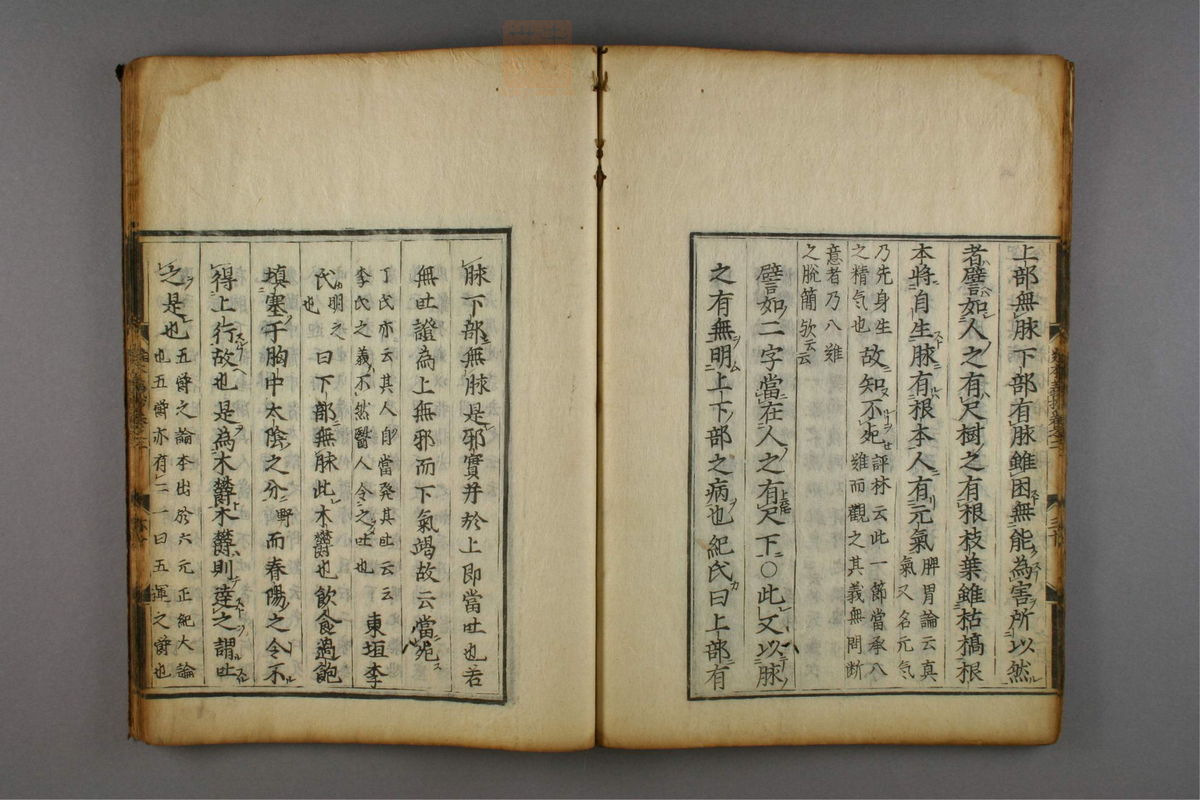 上部無脉下部有脉雖困無能為害所以然
者譬如人之有尺樹之有根枝葉雖枯槁根
本將自生脉有根本人有元氣脾胃論云真
氣又名元气
乃先身生
之精气也故知不死評林云此一節當承八
難而觀之其義無問断
意者乃八難
之脱簡欤云云
譬如二字當在人之有尺下○此又以脉
之有無明上下部之病也紀氏曰上部有
脉下部無脉是邪實并於上即當吐也若
無吐證為上無邪而下氣竭故云當死
丁氏亦云其人自當発其吐云云
李氏之義不然醫人令之吐也東垣李
氏明之
也曰下部無脉此木欝也飲食過飽
填塞于胸中太陰之分野而春陽之令不
得上行故也是為木欝木欝則達之謂吐
之是也五欝之論本出於六元正紀大論
也五欝亦有二一曰五運之欝也